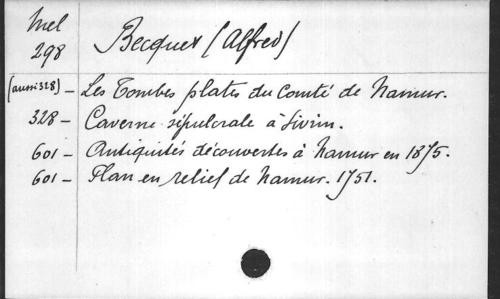 Mel
298 Becquet (Alfred)
(aussi 328) - Les Tombes plates du Comté de Namur.
328 - Caverne sépulcrale à Sivin.
601 - Antiquités découvertes à Namur en 1875.
601 - Plan en relief de Namur. 1751.